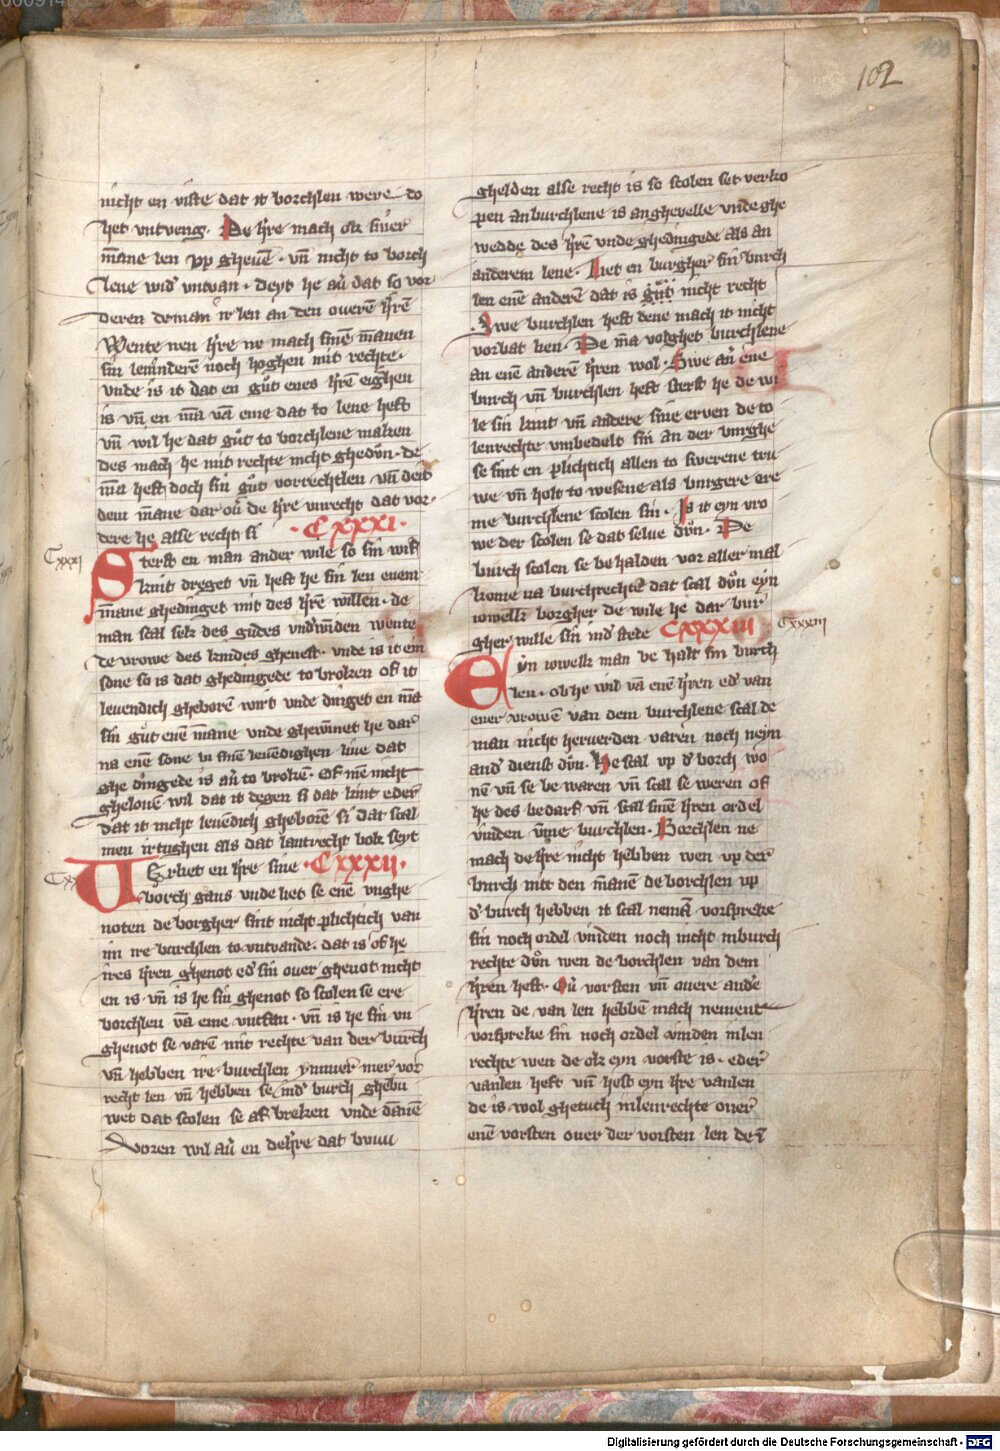 102
nicht en wiste dat it borchlen were do
het vntveng. De hre mach ok siner
mane len vp gheuē. vn̄ nicht to borch
lene wid' vntvan. deyt he au̇ dat so vor
deren de man ir len an den overē hrē
Wente nen hre ne mach sinē māuen
sin len inderē noch hoghen mit rechte.
vnde is it dat en gůt enes hrē eighen
is vn̄ en mā vā eme dat to lene heft
vn̄ wil he dat gůt to borchlene maken
des mach he mit rechte nicht ghedůn. de
mā heft doch sin gůt vor rechtlen vn̄ deit
dem māne dar ou̇ de hre vnrecht dat vor
dere he alse recht si · CXXXI ·
Cxxxi
Sterft en man ander wile so sin wif
kint dreget vn̄ heft he sin len enem
māne ghedinget mit des hrē willen. de
man scal sek des gudes vnd'winden wente
de vrowe des kindes ghenest. vnde is it ein
sone so is dat ghedingede to broken of it
leuendich gheborē wirt vnde dinget en mā
sin gůt enē māne vnde ghewinnet he dar
na enē sone bi sinē leuēdighen liue dat
ghe dingede is au̇ to brokē. Of mē nicht
ghelouē wil dat it degen si dat kint eder
dat it nicht leuēdich gheborē si dat scal
men irtughen als dat lantrecht bok seyt
Verliet en hre sine · CXXXII ·
borch gans vnde liet se enē vnghe
noten de borgher sint nicht plichtich van
im ire burchlen to vntvande. dat is of he
ires hren ghenot ed' sin over ghenot nicht
en is vn̄ is he sin ghenot so scolen se ere
borchlen vā eme vntfan. vn̄ is he sin vn
ghenot se varē mit rechte van der burch
vn̄ hebben ire burchlen ymmer mer vor
recht len vn̄ hebben se ind' burch ghebu
wet dat scolen se af breken vnde dānē
voren wil au̇ en de hre dat buuu
ghelden alse recht is so scolen set verko
pen an burchlene is anghevelle vnde ghe
wedde des hrē vnde ghedingede als an
anderem lene. Liet en burgher sin burch
len enē anderē dat is gůt nicht recht
Swe burchlen heft dene mach it nicht
vorbat lien. De mā volghet burchlene
an enē anderē hren wol. Swe au̇ ene
burch vn̄ burchlen heft sterft he de wi
le sin kint vn̄ andere sine erven de to
lenrechte vmbedelt sin an der burghe
se sint en plichtich allen to swerene tru
we vn̄ holt to wesene als burgere ere
me burchlene scolen sin. Is it eyn vro
we der scolen se dat selue dun. De
burch scolen se behalden vor aller mal
kome na burchrechte dat scal dun eyn
iowelk borgher de wile he dar bur
gher wille sin ind' stede CXXXIII
Cxxxiii
Eyn iowelk man be halt sin burch
len. ob he wil vā enē hren ed' van
ener vrowē van dem burchlene scal de
man nicht herverden varen noch neyn
and' dienst dun. He scal vp d' borch wo
nē vn̄ se be waren vn̄ scal se weren of
he des bedarf vn̄ scal sinē hren ordel
vinden vm̄e burchlen. Borchlen ne
mach de hre nicht hebben wen vp der
burch mit den mānē de borchlen vp
d' burch hebben it scal nemā vorspreke
sin noch ordel vinden noch nicht in burch
rechte dun wen de borchlen van dem
hren heft. Ou̇ vorsten vn̄ overe and'e
hren de van len hebbē mach nement
vorspreke sin noch ordel vinden in len
rechte wen de ok eyn vorste is. eder
vanlen heft vn̄ heft eyn hre vanlen
de is wol ghetuch in lenrechte over
enē vorsten over der vorsten len de ī
Digitalisierung gefördert durch die Deutsche Forschungsgemeinschaft - DFG